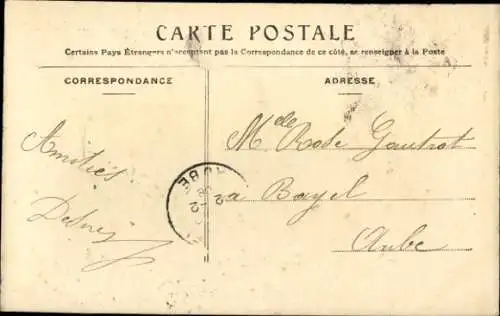 CARTE POSTALE
Certains Pays Étrangers n'acceptant pas la Correspondance de ce côté, se renseigner à la Poste
CORRESPONDANCE
ADRESSE
Amitiés
Melle Rose Gautrot
a Bayel
Aube
AUBE